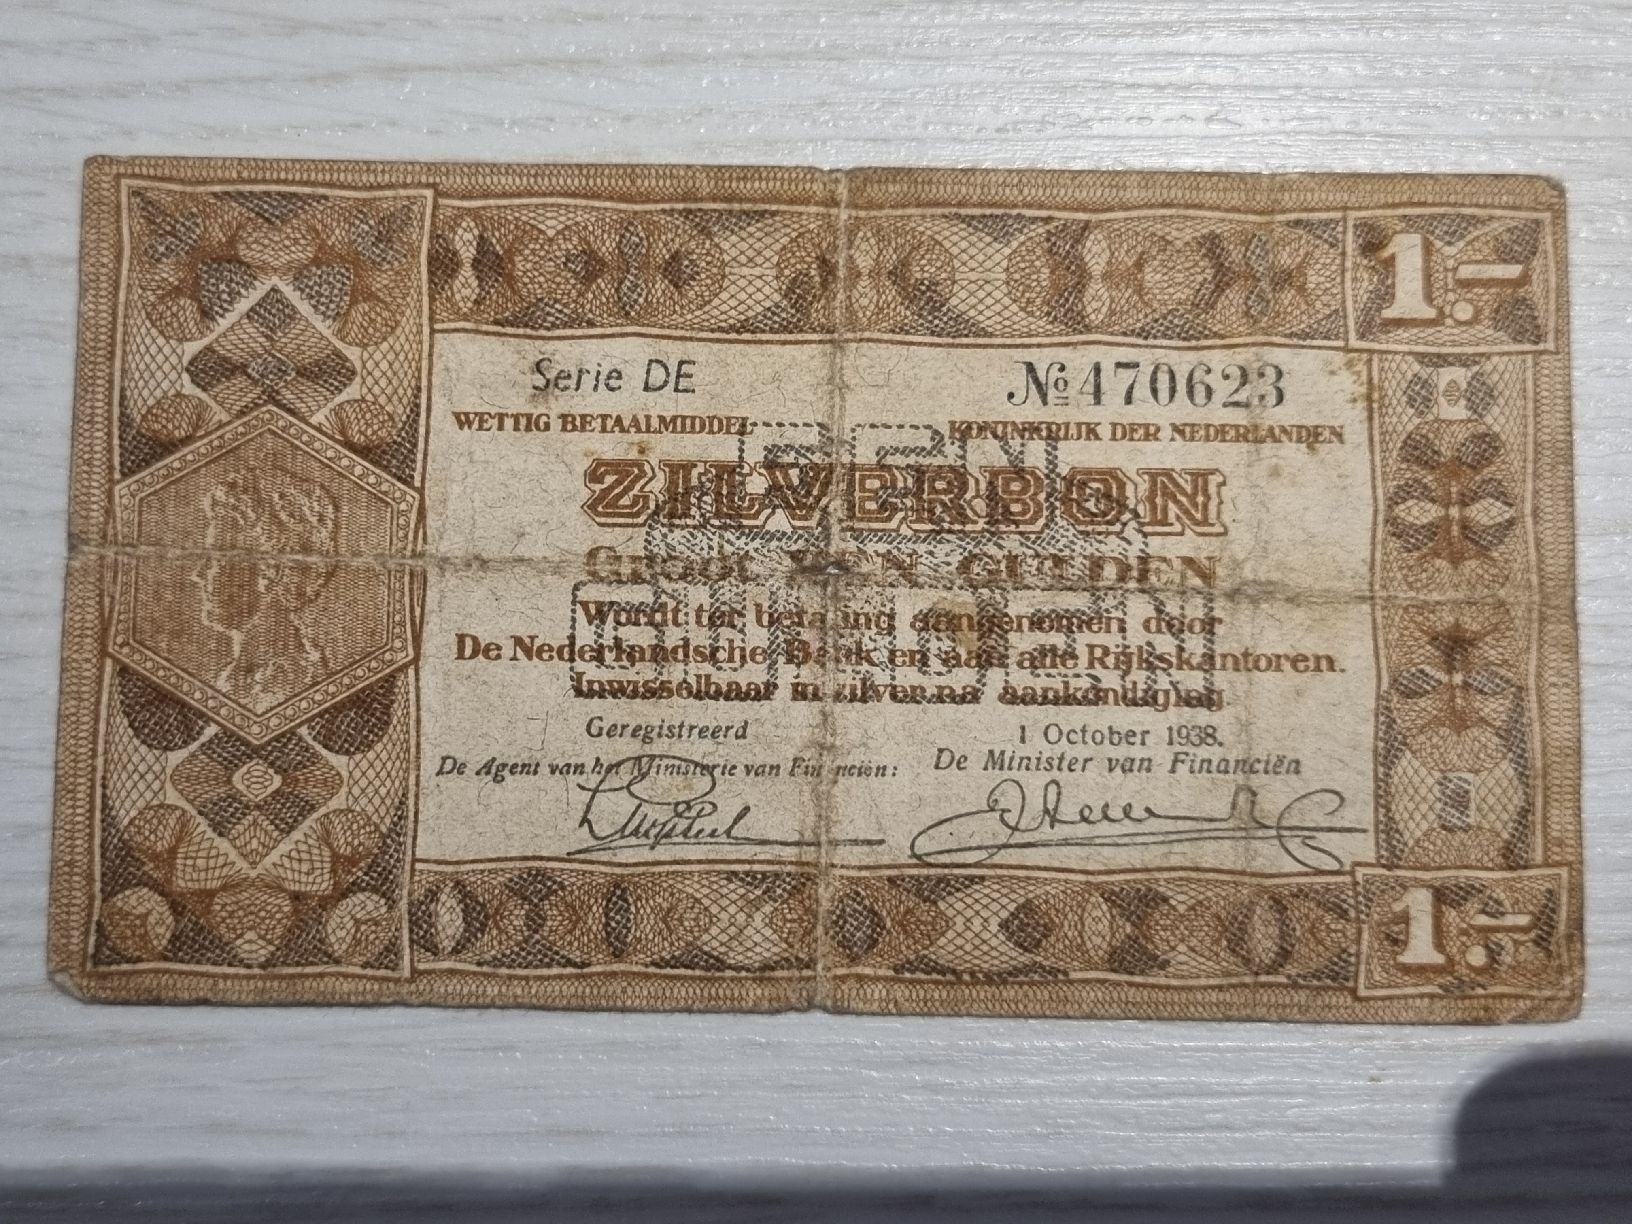 1.-
Serie DE
№ 470623
WETTIG BETAALMIDDEL
KONINKRIJK DER NEDERLANDEN
ZILVERBON
GROOT EEN GULDEN
EEN
GULDEN
Wordt ter betaling aangenomen door
De Nederlandsche Bank en aan alle Rijkskantoren.
Inwisselbaar in zilver na aankondiging
Geregistreerd
1 October 1938.
De Agent van het Ministerie van Financiën:
De Minister van Financiën
1.-